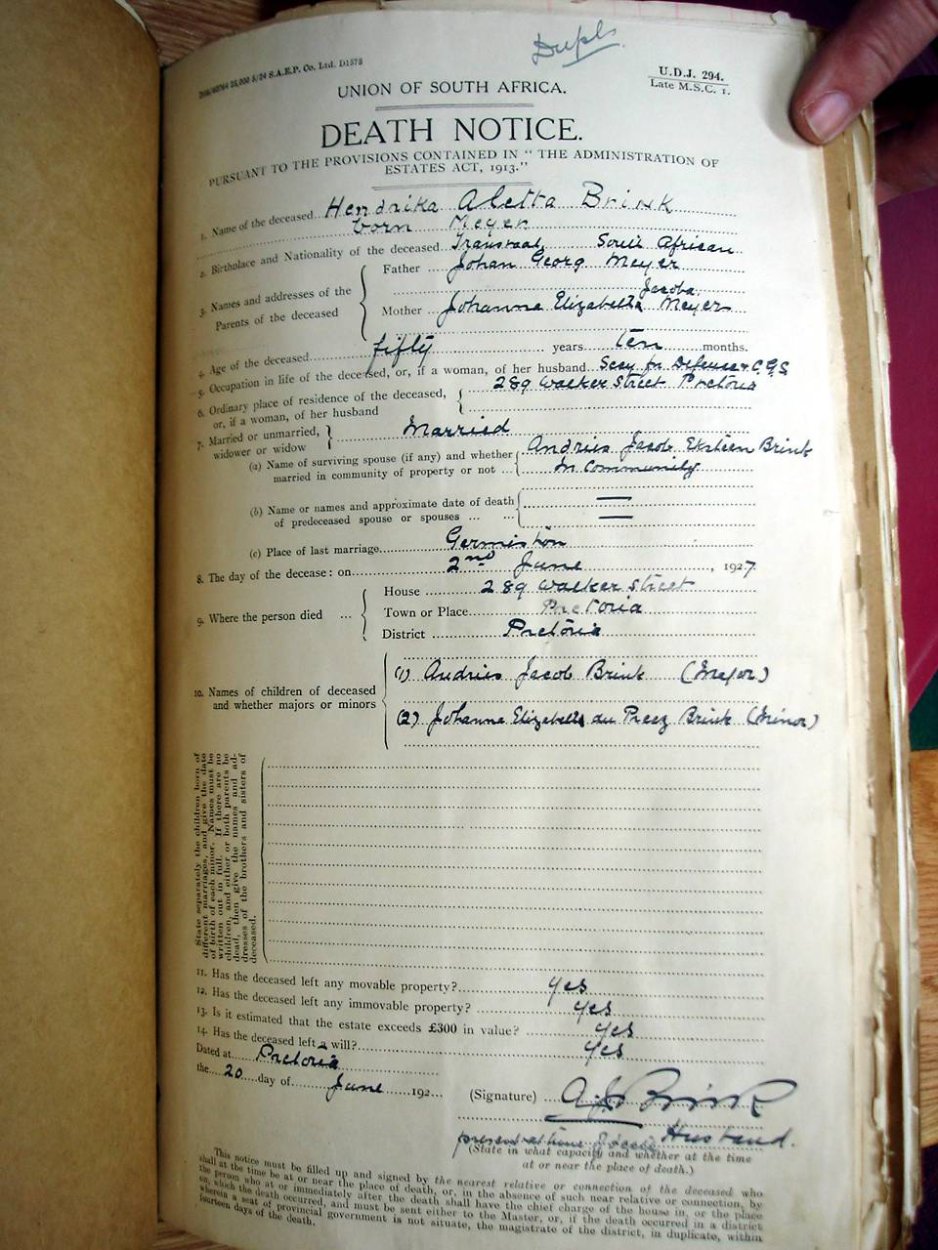 Dupl.
25,000 5/24 S.A.E.P. Co. Ltd. D1578
U.D.J. 294.
Late M.S.C. 1.
UNION OF SOUTH AFRICA.
DEATH NOTICE.
PURSUANT TO THE PROVISIONS CONTAINED IN "THE ADMINISTRATION OF
ESTATES ACT, 1913."
1. Name of the deceased Hendrika Aletta Brink
born Meyer
2. Birthplace and Nationality of the deceased Transvaal, South African
3. Names and addresses of the Parents of the deceased
Father Johan Georg Meyer
Jacoba
Mother Johanna Elizabetta Meyer
4. Age of the deceased fifty years ten months.
5. Occupation in life of the deceased, or, if a woman, of her husband Secy for Defence & C.G.S
6. Ordinary place of residence of the deceased, 289 Walker Street Pretoria
or, if a woman, of her husband
7. Married or unmarried, Married
widower or widow
(a) Name of surviving spouse (if any) and whether Andries Jacob Eksteen Brink
married in community of property or not in community
(b) Name or names and approximate date of death —
of predeceased spouse or spouses ... ... —
(c) Place of last marriage Germiston
8. The day of the decease: on 2nd June, 1927
9. Where the person died ...
House 289 Walker Street
Town or Place Pretoria
District Pretoria
10. Names of children of deceased
and whether majors or minors
(1) Andries Jacob Brink (Major)
(2) Johanna Elizabetta du Preez Brink (Minor)
State separately the children born of
different marriages, and give the date
of birth of each minor. Names must be
written out in full. If there are no
children, and either or both parents be
dead, then give the names and ad-
dresses of the brothers and sisters of
deceased.
11. Has the deceased left any movable property? yes
12. Has the deceased left any immovable property? yes
13. Is it estimated that the estate exceeds £300 in value? yes
14. Has the deceased left a will? yes
Dated at Pretoria
the 20 day of June 192
(Signature) A J E Brink
present at time of death Husband.
(State in what capacity and whether at the time
at or near the place of death.)
This notice must be filled up and signed by the nearest relative or connection of the deceased who
shall at the time be at or near the place of death, or, in the absence of such near relative or connection, by
the person who at or immediately after the death shall have the chief charge of the house in, or the place
on, which the death occurred, and must be sent either to the Master, or, if the death occurred in a district
wherein a seat of provincial government is not situate, the magistrate of the district, in duplicate, within
fourteen days of the death.